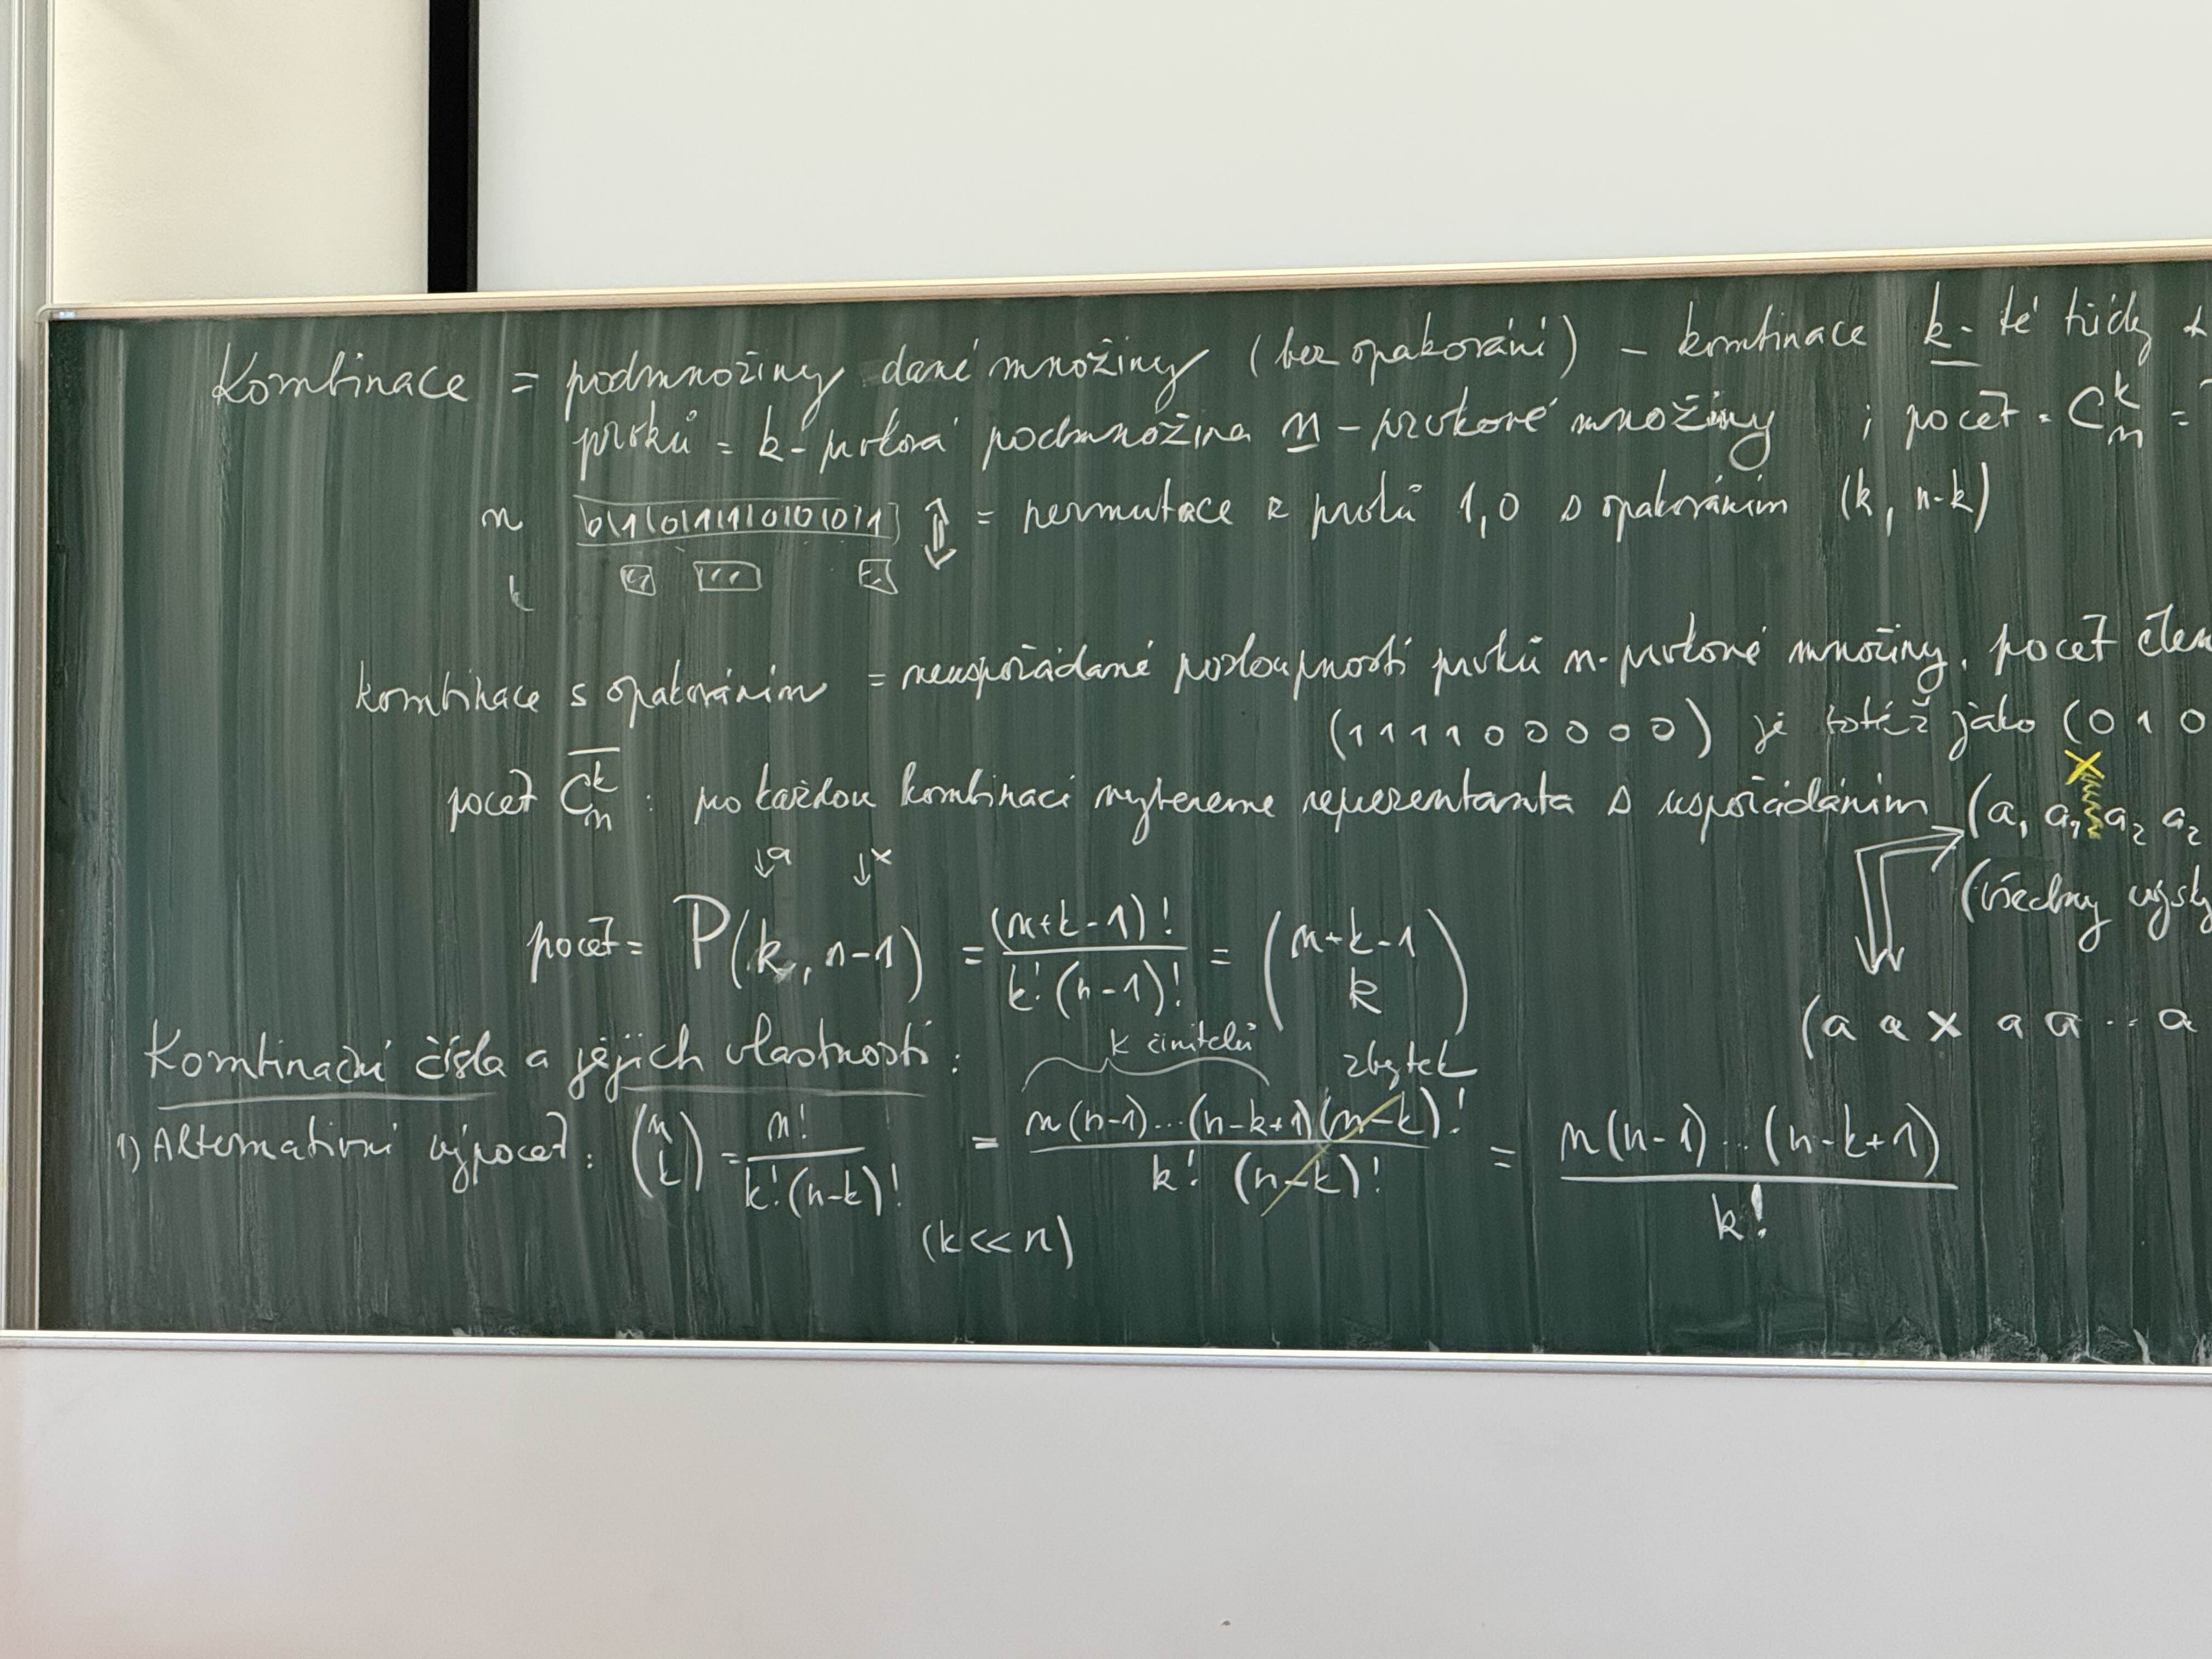 Kombinace = podmnožiny dané množiny (bez opakování) – kombinace k-té třídy z
prvků = k-prvková podmnožina n-prvkové množiny ; počet = C_n^k =
n 0|1|0|1|1|1|0|0|0|1 ⇕ = permutace z prvků 1,0 s opakováním (k, n-k)
k
kombinace s opakováním = neuspořádané posloupnosti prvků n-prvkové množiny, počet člen
(1 1 1 1 0 0 0 0 0) je totéž jako (0 1 0
počet C̅_n^k : pro každou kombinaci vybereme reprezentanta s uspořádáním (a₁ a₁ a₂ a₂
x
↓a ↓x
(všechny výsky
počet = P(k, n-1) = (n+k-1)! / k!(n-1)! = (n+k-1 nad k)
(a a x a a ·· a
Kombinační čísla a jejich vlastnosti :
k činitelů zbytek
1) Alternativní výpočet : (n nad k) = n! / k!(n-k)! = n(n-1)...(n-k+1)(n-k)! / k! (n-k)! = n(n-1)...(n-k+1) / k!
(k<<n)